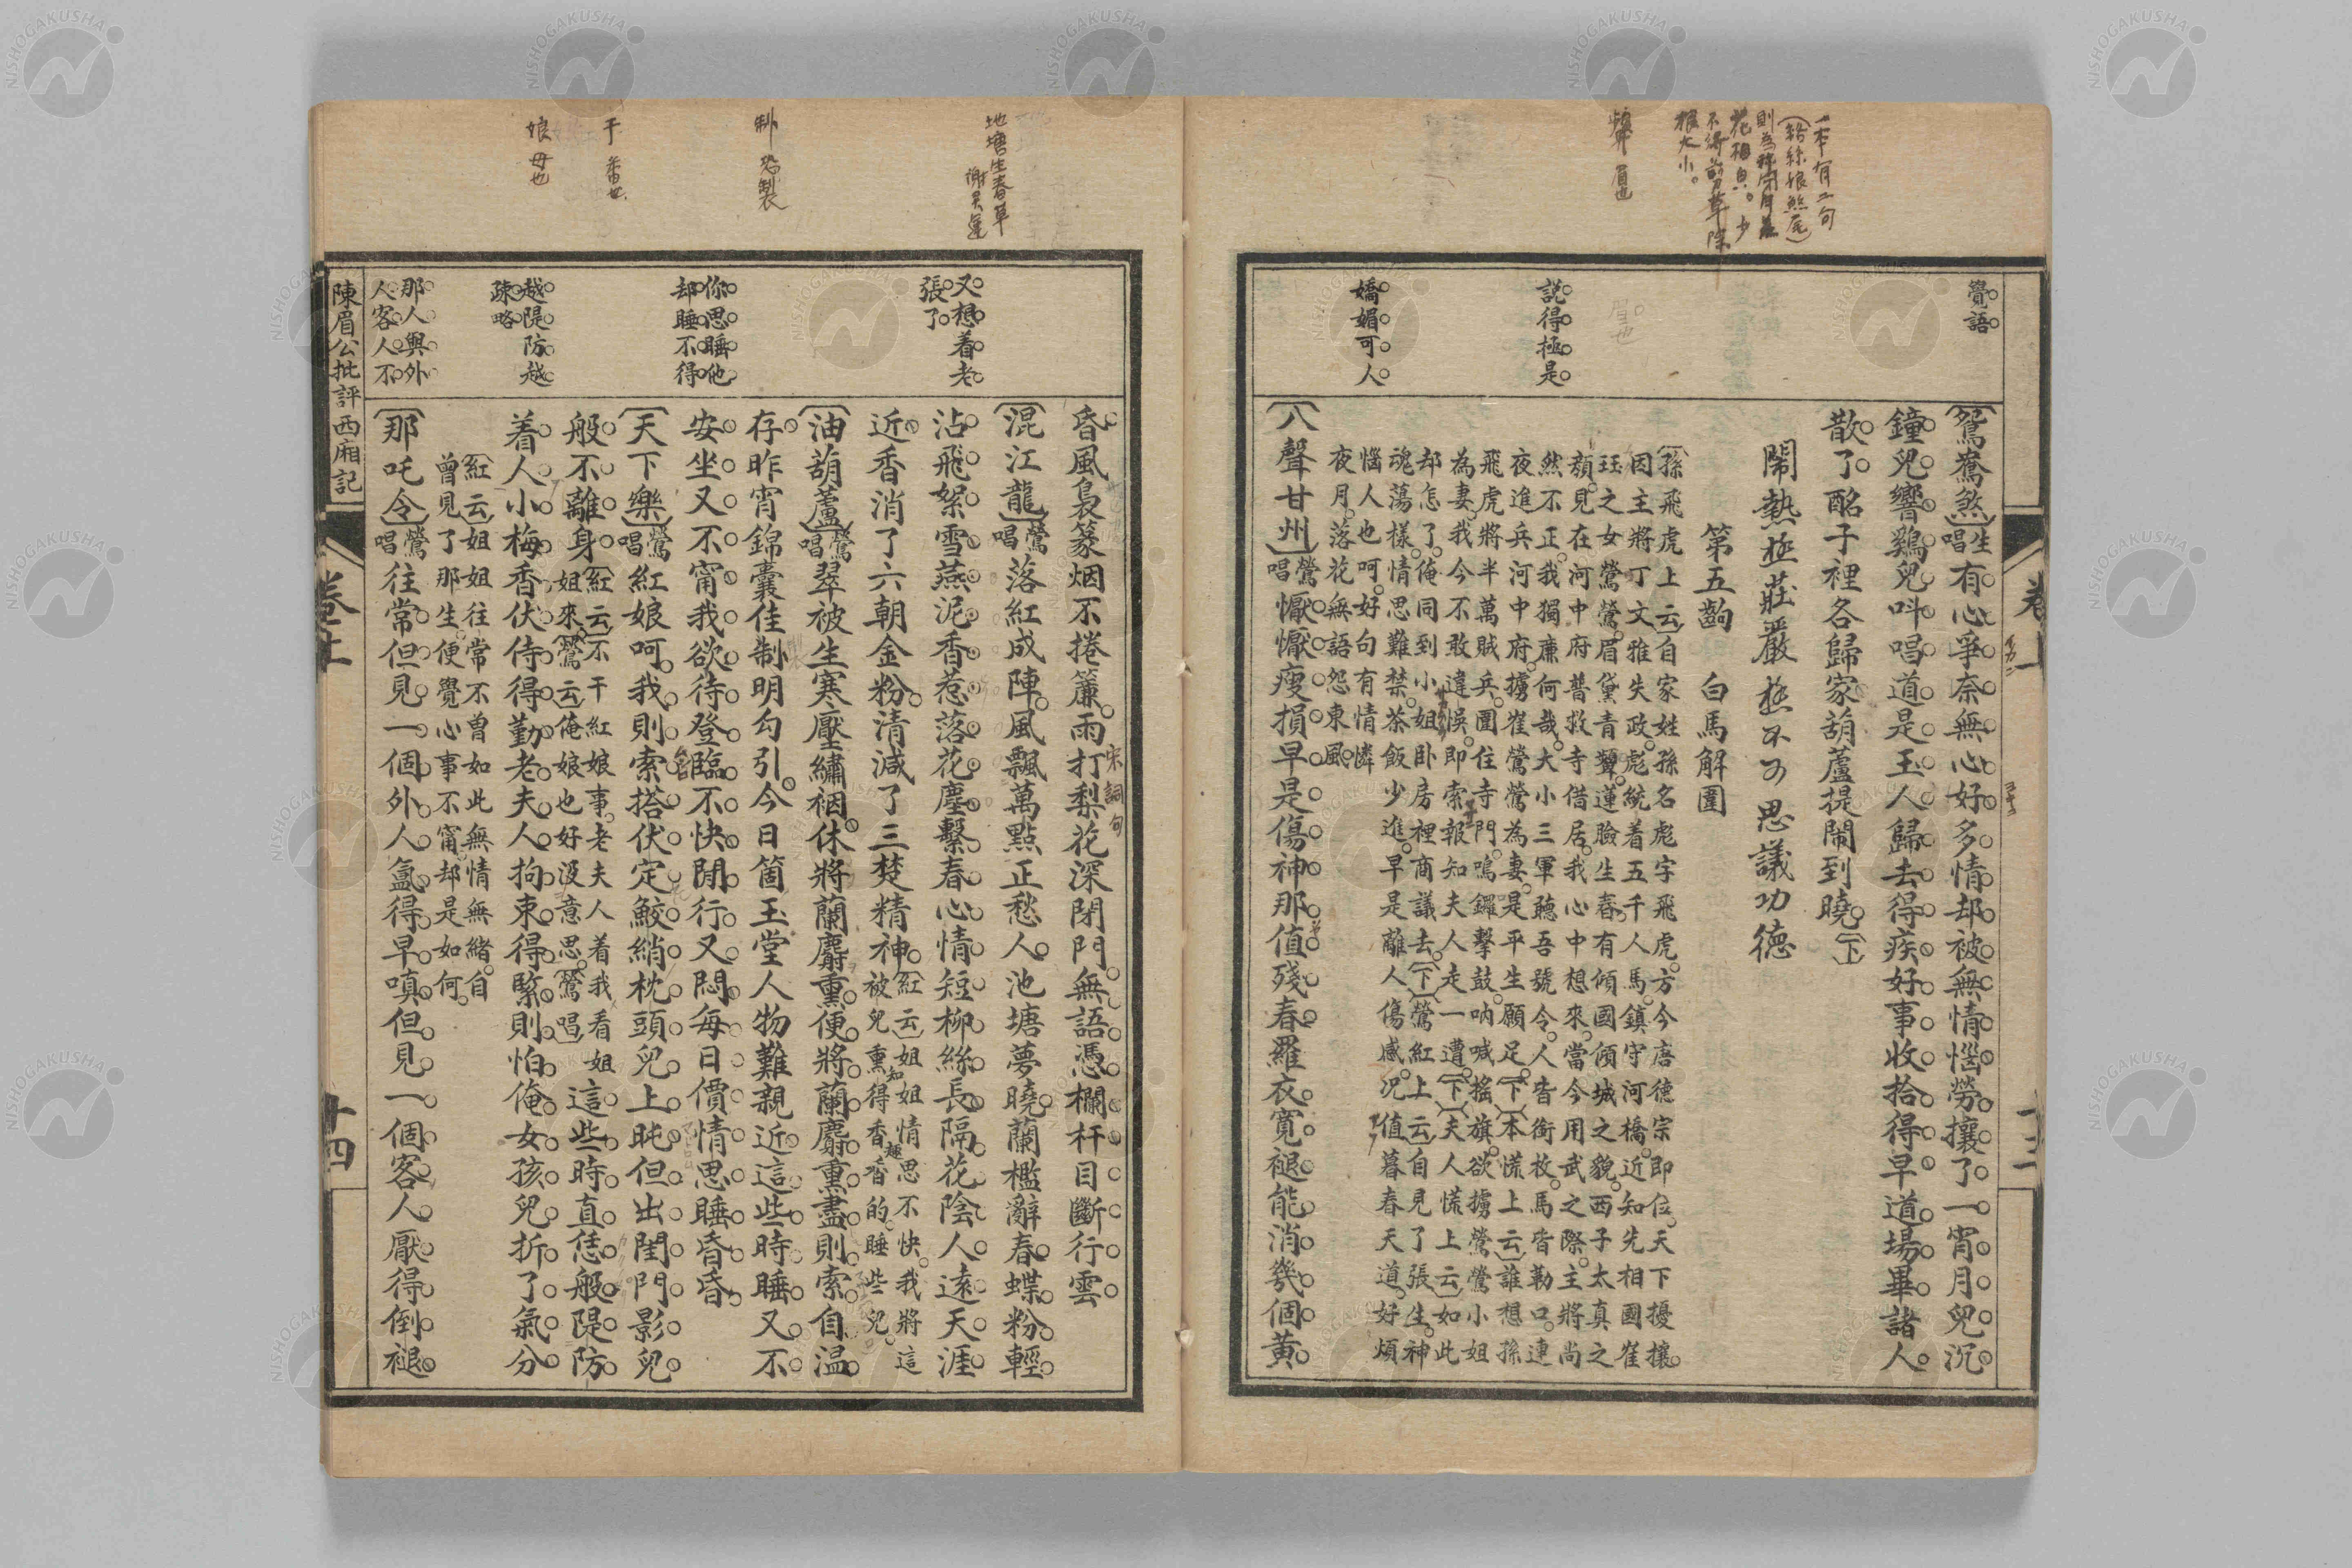 覺語
說得極是
嬌媚可人
〔鴛鴦煞〕生唱有心爭奈無心好多情却被無情惱勞攘了一宵月兒沉
鐘兒響鷄兒呌唱道是玉人歸去得疾好事收拾得早道場畢諸人
散了酩子裡各歸家葫蘆提閙到曉〔下〕
閙熱極莊嚴極不可思議功德
第五齣　白馬解圍
〔孫飛虎上云〕自家姓孫名彪字飛虎方今唐德宗即位天下擾攘
因主將丁文雅失政彪統着五千人馬鎮守河橋近知先相國崔
珏之女鶯鶯眉黛青顰蓮臉生春有傾國傾城之貌西子太真之
顏見在河中府普救寺借居我心中想來當今用武之際主將尚
然不正我獨廉何哉大小三軍聽吾號令人皆銜枚馬皆勒口連
夜進兵河中府擄崔鶯鶯為妻是平生願足〔下〕〔本慌上云〕誰想孫
飛虎將半萬賊兵圍住寺門鳴鑼擊鼓吶喊搖旗欲擄鶯鶯小姐
為妻我今不敢違悞即索報知夫人走一遭〔下〕〔夫人慌上云〕如此
却怎了俺同到小姐卧房裡商議去〔下〕〔鶯紅上云〕自見了張生神
魂蕩樣情思難禁茶飯少進早是離人傷感况值暮春天道好煩
惱人也呵好句有情憐
夜月落花無語怨東風
〔八聲甘州〕鶯唱懨懨瘦損早是傷神那值殘春羅衣寬褪能消幾個黃
卷上
十三
一本有二句
顰 眉也
又想着老
張了
你思睡他
却睡不得
越隄防越
疎略
那人與外
人客人不
昏風裊篆烟不捲簾雨打梨花深閉門無語憑欄杆目斷行雲
宋詞句
〔混江龍〕鶯唱落紅成陣風飄萬點正愁人池塘夢曉蘭檻辭春蝶粉輕
沾飛絮雪燕泥香惹落花塵繫春心情短柳絲長隔花陰人遠天涯
近香消了六朝金粉清減了三楚精神〔紅云〕姐姐情思不快我將這
被兒熏得香香的睡些兒
〔油葫蘆〕鶯唱翠被生寒壓繡裀休將蘭麝熏便將蘭麝熏盡則索自溫
存昨宵錦囊佳制明勾引今日箇玉堂人物難親近這些時睡又不
安坐又不甯我欲待登臨不快閒行又悶每日價情思睡昏昏
〔天下樂〕鶯唱紅娘呵我則索搭伏定鮫綃枕頭兒上盹但出閨門影兒
般不離身〔紅云〕不干紅娘事老夫人着我看姐
姐來〔鶯云〕俺娘也好沒意思〔鶯唱〕這些時直恁般隄防
着人小梅香伏侍得勤老夫人拘束得緊則怕俺女孩兒折了氣分
〔紅云〕姐姐往常不曾如此無情無緒自
曾見了那生便覺心事不甯却是如何
〔那吒令〕鶯唱往常但見一個外人氳得早嗔但見一個客人厭得倒褪
陳眉公批評西廂記
卷上
十四
地塘生春草
制 恐製
干 番也
娘 母也
NISHOGAKUSHA